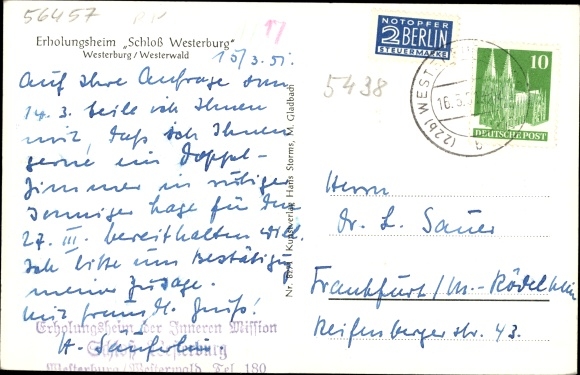 56457
17
Erholungsheim „Schloß Westerburg“
Westerburg / Westerwald
15/3.51.
Auf Ihre Anfrage vom
14.3. teile ich Ihnen
mit, daß ich Ihnen
gerne ein Doppel-
zimmer in ruhiger
sonniger Lage für den
27. III. bereithalten will.
Ich bitte um Bestätigung
meiner Zusage.
Mit freundl. Gruß!
Erholungsheim der Inneren Mission
Schloß Westerburg
Westerburg/Westerwald Tel. 180
Nr. 8291 Kunstverlag Hans Storms, M. Gladbach
NOTOPFER
2 BERLIN
STEUERMARKE
10
DEUTSCHE POST
(22b) WEST
16.3.
b
5438
Herrn
Dr. L. Sauer
Frankfurt/M.-Rödelheim
Reifenbergerstr. 43.